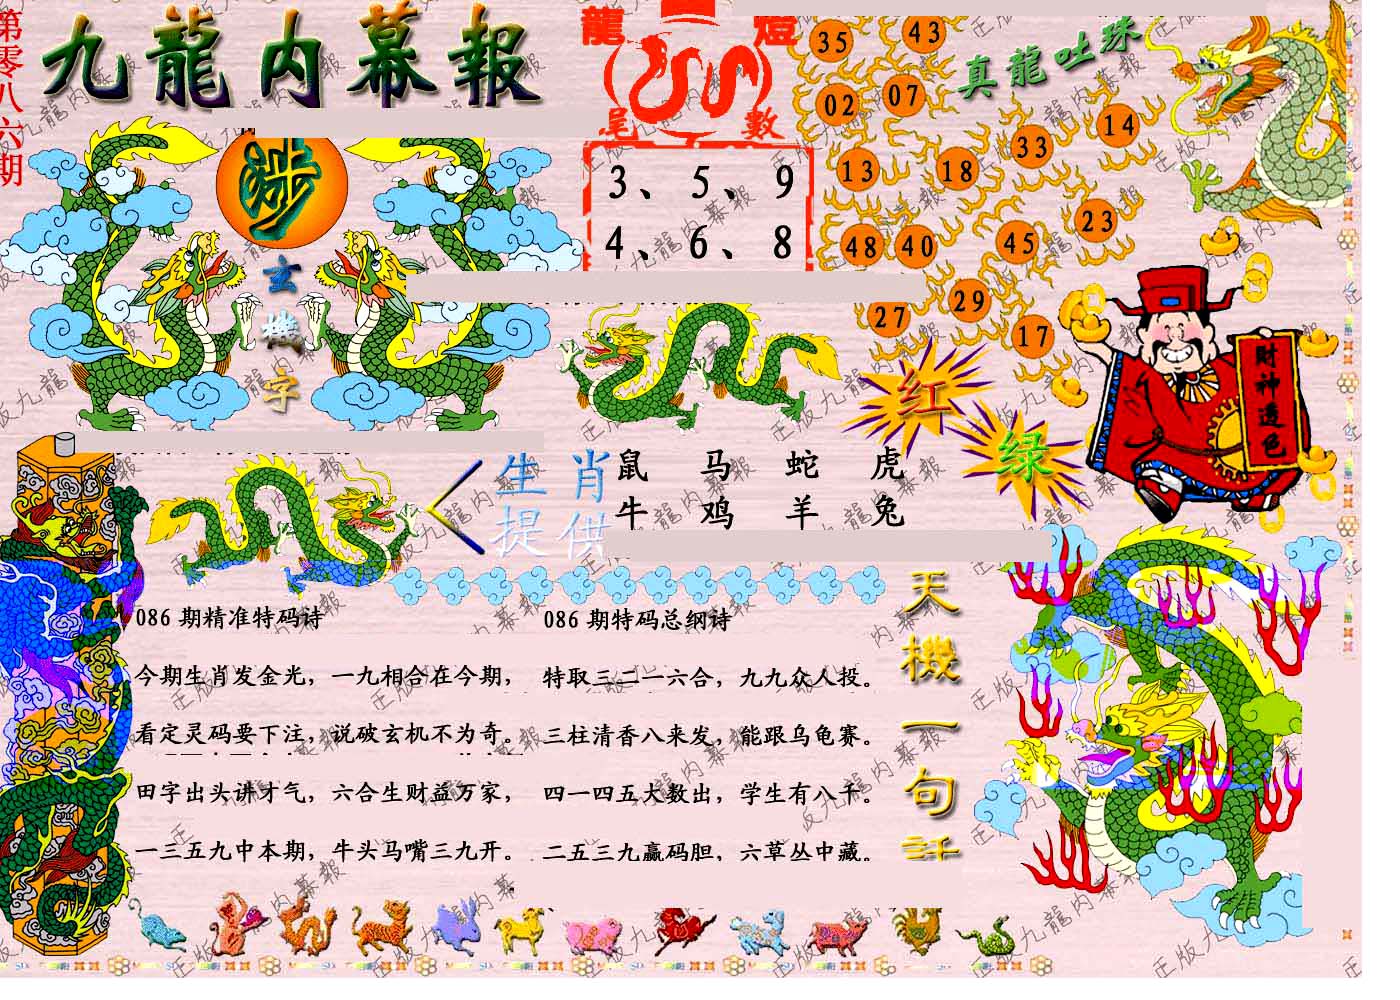 第零八六期
九龍内幕報
龍燈
尾數
3、5、9
4、6、8
真龍吐珠
35 43
02 07
14
33
13 18
23
48 40 45
29
27 17
玄機字
红
绿
財神送色
生肖提供
鼠 马 蛇 虎
牛 鸡 羊 兔
086 期精准特码诗
今期生肖发金光，一九相合在今期，
看定灵码要下注，说破玄机不为奇。
田字出头讲才气，六合生财益万家，
一三五九中本期，牛头马嘴三九开。
086 期特码总纲诗
特取三二一六合，九九众人投。
三柱清香八来发，能跟乌龟赛。
四一四五大数出，学生有八千。
二五三九赢码胆，六草丛中藏。
天機一句話
正版九龍内幕報